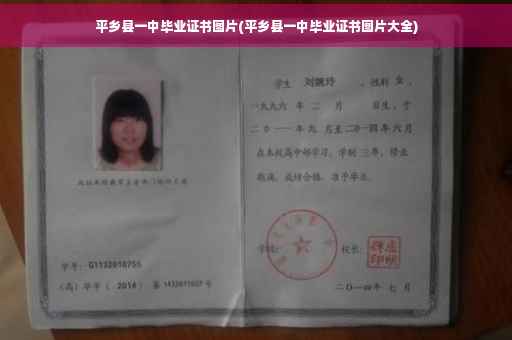 平乡县一中毕业证书图片(平乡县一中毕业证书图片大全)
学生 刘婉玲 ，性别 女 ，
一九九六 年 二 月 日生，于
二０一一 年 九 月至 二０一四 年 六 月
在本校高中部学习，学制 三 年，修业
期满，成绩合格，准予毕业。
学号：G1132010755
（高）毕字（ 2014 ）第 1432011027 号
学校：
校长：
二〇一四年 七 月